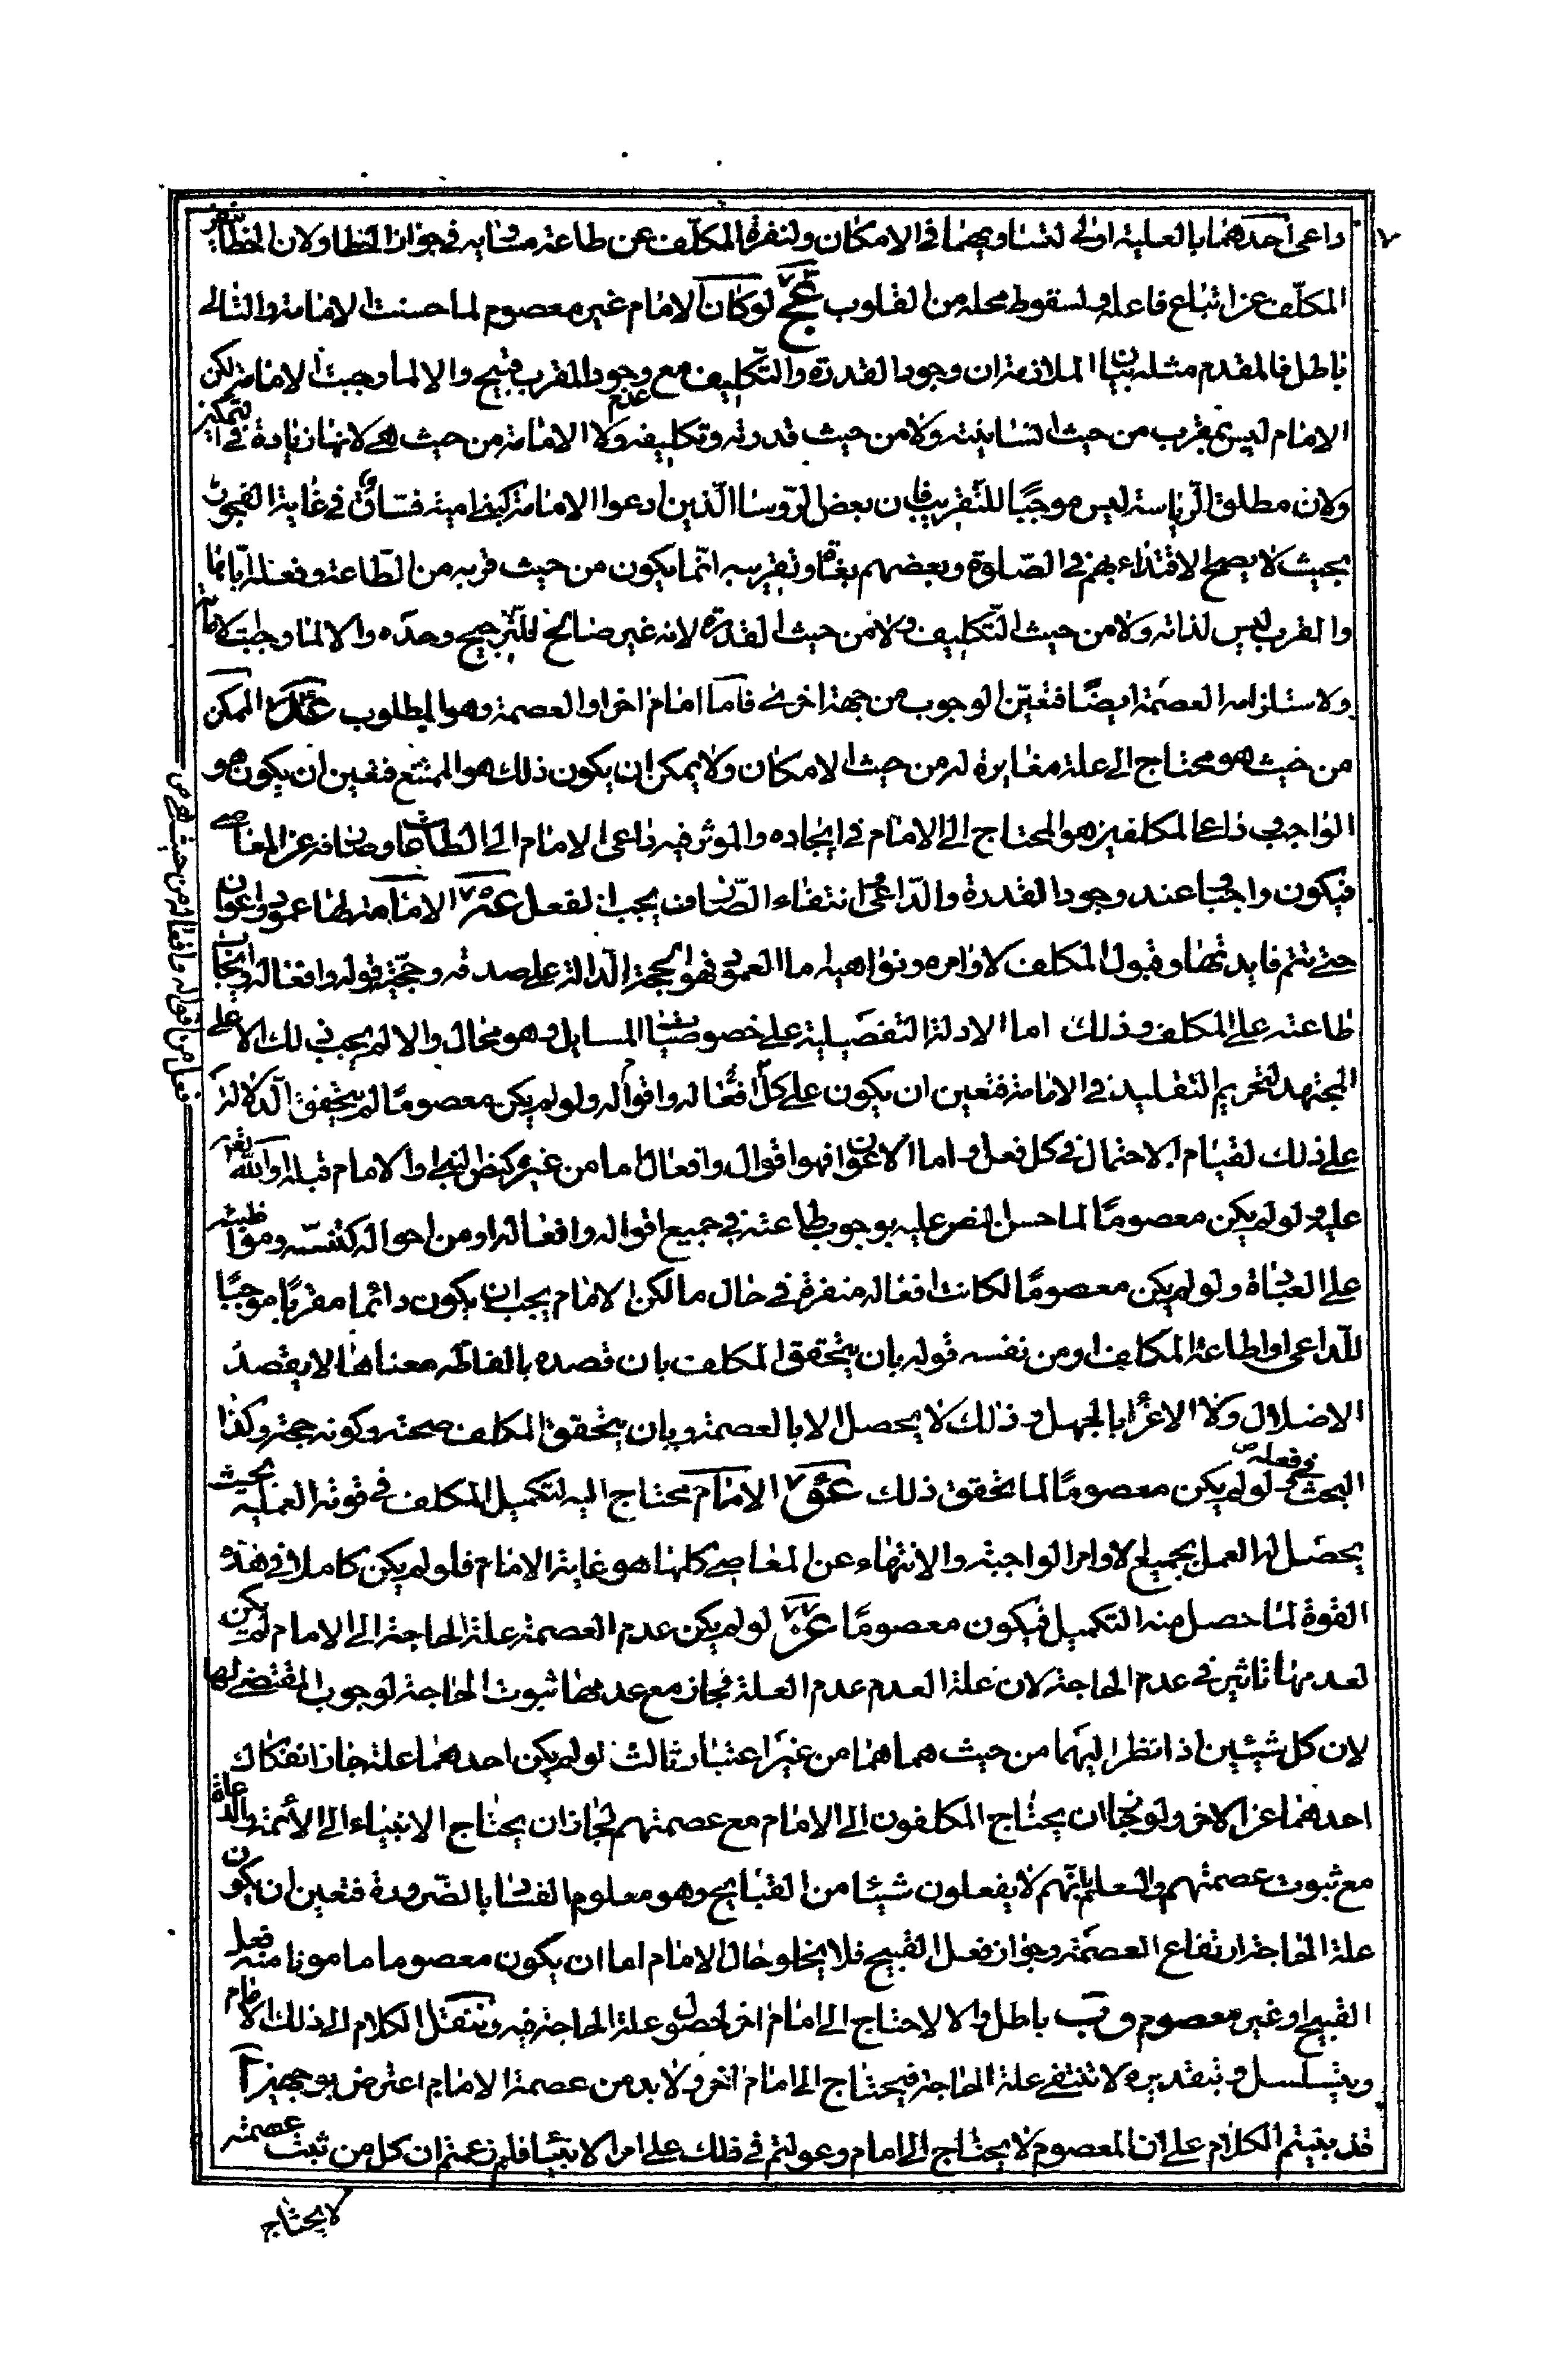 ١٧
داعى احدهما بالعلية اولى لتساويهما فى الامكان ولنفرة المكلّف عن طاعة مساويه فى جواز الخطا ولان الخطأ ينفر
المكلّف عن اتباع فاعله لسقوط محله من القلوب عج لو كان الامام غير معصوم لما حسنت الامامة والتالى
باطل فالمقدم مثله بيان الملازمة ان وجود القدرة والتّكليف مع عدم وجود المقرب قبيح والا لما وجبت الامامة لكن
الامام ليس بمقرب من حيث انسانيته ولا من حيث قدرته وتكليفه ولا الامامة من حيث هى لانها زيادة فى التمكين
ولان مطلق الرّياسة ليس موجبًا للتّقريب فان بعض الرّوسا الّذين ادعوا الامامة كبنى امية فسّاق فى غاية الفجور
بحيث لا يصح الاقتداء بهم فى الصّلوة وبعضهم بغاة وتقريبه انّما يكون من حيث قربه من الطّاعة وفعله ايّاها
والقرب ليس لذاته ولا من حيث التّكليف ولا من حيث القدرة لانه غير صالح للتّرجيح وحده والا لما وجبت الامامة
ولاستلزامه العصمة ايضًا فتعيّن الوجوب من جهة اخرى فاما امام اخر او العصمة وهو المطلوب عد الممكن
من حيث هو محتاج الى علة مغايرة له من حيث الامكان ولا يمكن ان يكون ذلك هو الممتنع فتعين ان يكون هو
الواجب فى داعى المكلفين هو المحتاج الى الامام فى ايجاده والموثر فيه داعى الامام الى الطاعات وصارفه عن المعاصى
فيكون واجبا عند وجود القدرة والدّاعى وانتفاء الصّارف يجب الفعل عه الامامة لها عمود واعوان
حتى تتم فايدتها وقبول المكلف لاوامره ونواهيه اما العمود فهو الحجة الدّالة على صدقه وحجّية قوله وافعاله وايجاب
طاعته على المكلف وذلك اما الادلة التفصيلية على خصوصيات المسايل وهو محال والا لم يجب ذلك الا على
المجتهد لتحريم التقليد فى الامامة فتعين ان يكون على كلّ افعاله واقواله ولو لم يكن معصومًا لم يتحقق الّدلالة
على ذلك لقيام الاحتمال فى كل فعل واما الاعوان فهو اقوال وافعال اما من غيره كنص النبى والامام قبله او الله تعالى
عليه لو لم يكن معصومًا لما حسن النص عليه بوجوب طاعته فى جميع اقواله وافعاله او من احواله كتنسّكه ومواظبته
على العبادة ولو لم يكن معصومًا لكانت افعاله منفرة فى حال ما لكن الامام يجب ان يكون دائما مقربًا موجبًا
للدّاعى او اطاعة المكلف او من نفسه قوله بان يتحقق المكلف بان قصده بالفاظه معناها لا يقصد
الاضلال ولا الاغرا بالجهل وذلك لا يحصل الا بالعصمة وبان يتحقق المكلف صحته وكونه حجة وكذا
البحث فى فعله لو لم يكن معصومًا لما تحقق ذلك عو الامام محتاج اليه لتكميل المكلف فى قوته العملية بحيث
يحصل له العمل بجميع الاوامر الواجبة والانتهاء عن المعاصى كلها هو غاية الامام فلو لم يكن كاملا فى هذه
القوة لما حصل منه التكميل فيكون معصومًا عز لو لم يكن عدم العصمة علة الحاجة الى الامام لم يكن
لعدمها تاثير فى عدم الحاجة لان علة العدم عدم العلة فجاز مع عدمها ثبوت الحاجة لوجوب المقتضى لها
لان كل شيئين اذا نظر اليهما من حيث هما هما من غير اعتبار ثالث لو لم يكن احدهما علة جاز انفكاك
احدهما عن الاخر ولو جاز ان يحتاج المكلفون الى الامام مع عصمتهم لجاز ان يحتاج الانبياء الى الأئمة والدعاة
مع ثبوت عصمتهم والعلم بانّهم لا يفعلون شيئا من القبايح وهو معلوم الفساد بالضّرورة فتعين ان يكون
علة الحاجة ارتفاع العصمة وجواز فعل القبيح فلا يخلو حال الامام اما ان يكون معصوما مامونا منه فعل
القبيح او غير معصوم وب باطل والا لاحتاج الى امام اخر لحصول علة الحاجة فيه وننقل الكلام الى ذلك الامام
ويتسلسل وبتقديره لا تنتفى علة الحاجة فيحتاج الى امام اخر ولا بد من عصمة الامام اعترض بوجهين آ
قد بنيتم الكلام على ان المعصوم لا يحتاج الى امام وعولتم فى ذلك على امر الانبيا فلم زعمتم ان كل من ثبت عصمته
لا يحتاج